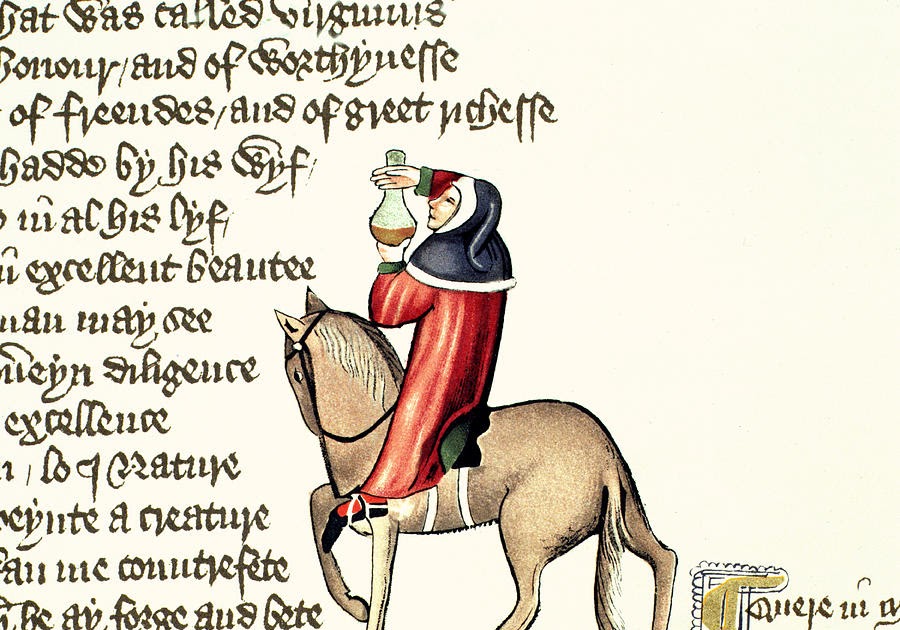 hat was called virginius
honour / and of worthynesse
of freendes / and of greet richesse
hadde by his wyf /
in al his lyf /
excellent beautee
man may see
diligence
excellence
lo I Nature
peynte a creature
kan me countrefete
he ay forge and bete